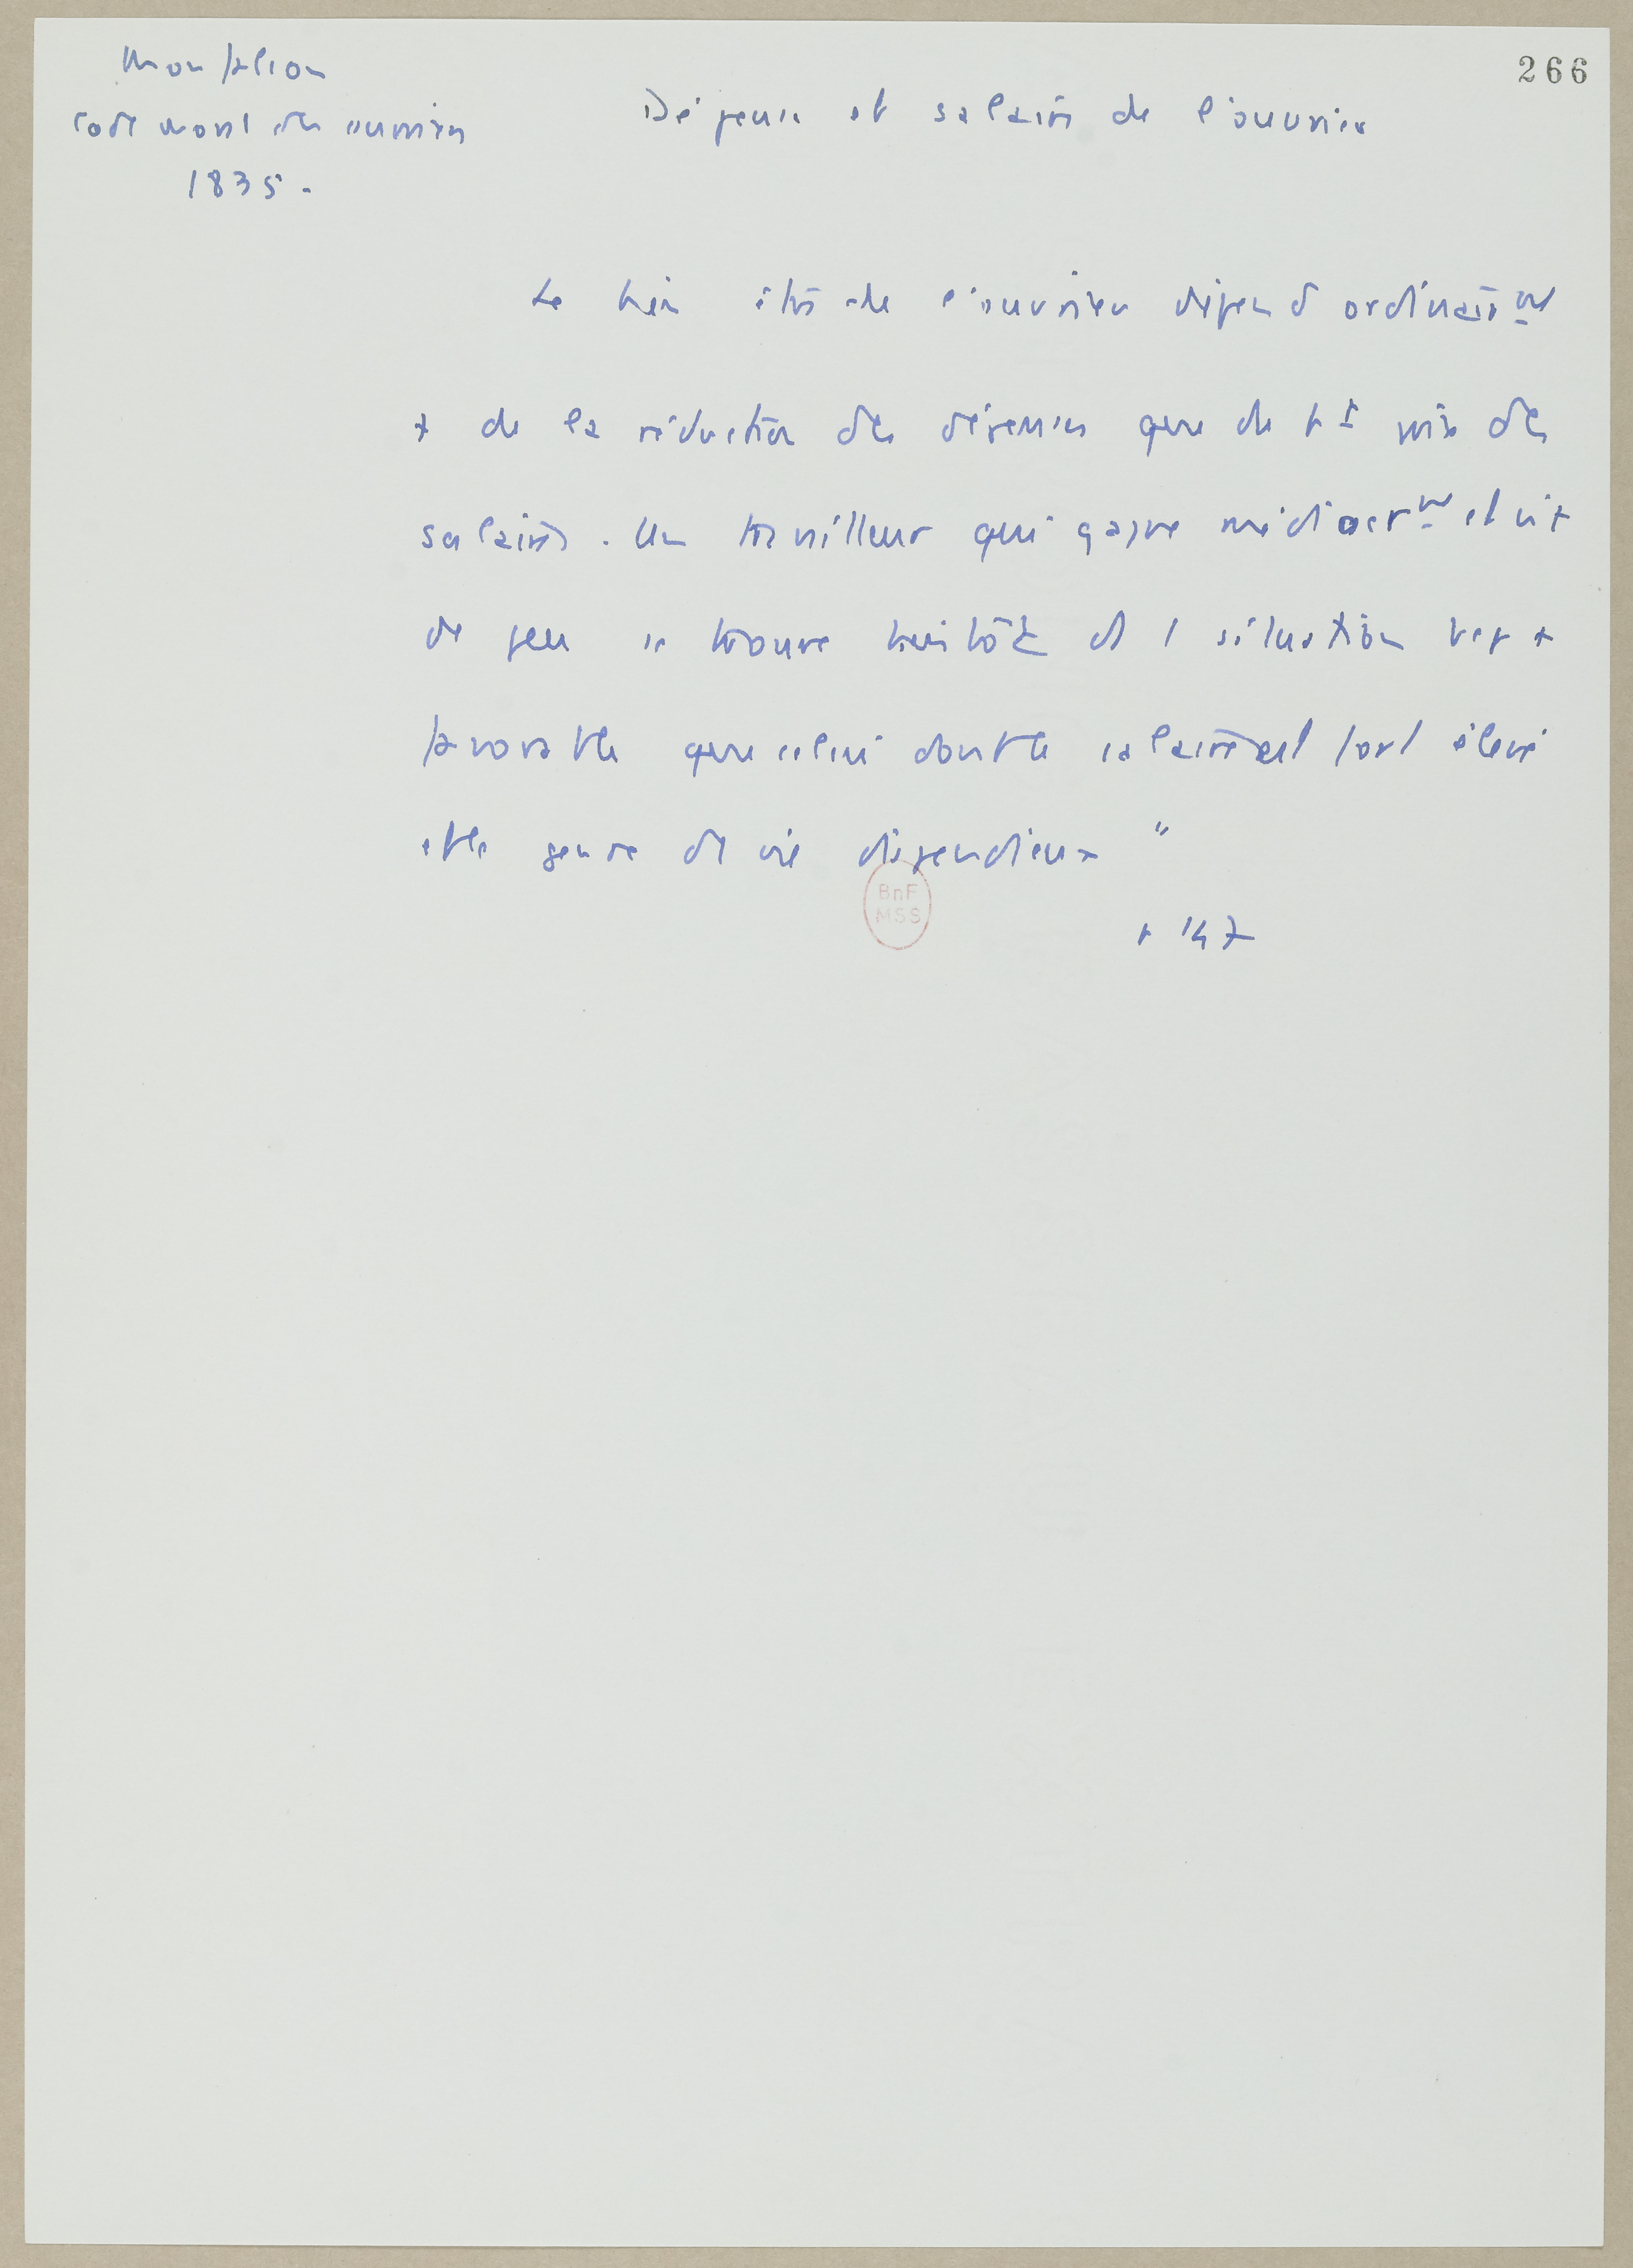 266
Monfalcon
Code moral des ouvriers
1835.
Dépense et salaire de l'ouvrier
Le bien être de l'ouvrier dépend ordinairemt
+ de la réduction des dépenses que de prix des
salaires. Un travailleur qui gagne médiocremt et vit
de peu se trouve bientôt ds 1 situation bcp +
favorable que celui dont le salaire est fort élevé
et le genre de vie dispendieux "
BnF
MSS
p 147